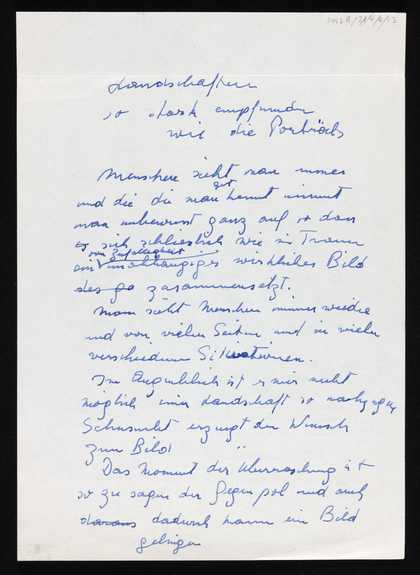 Landschaften
so stark empfunden
wie die Porträts
Menschen sieht man immer
und die die man gut kennt nimmt
man unbewusst ganz auf so dass
es sich schliesslich wie im Traum
von Zufälligkeit
ein unabhängiges wirkliches Bild
des ge zusammensetzt.
Man sieht Menschen immer wieder
und von vielen Seiten und in vielen
verschiedenen Situationen.
Im Augenblick ist es mir nicht
möglich einer Landschaft so nach
Sehnsucht erzeugt den Wunsch
zum Bild
Das Moment der Überraschung ist
so zu sagen der Gegenpol und auch
daraus dadurch kann ein Bild
gelingen